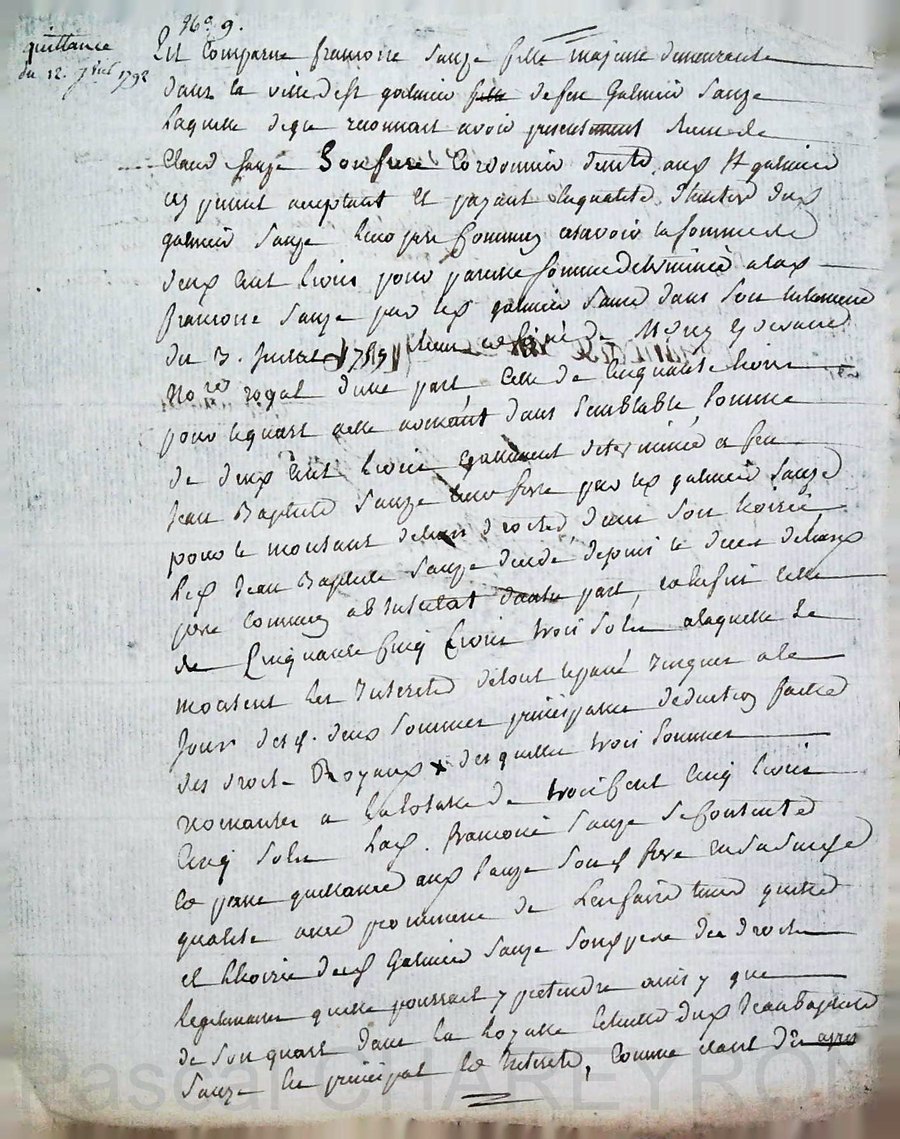 N.o 9.
quittance
du 12. 7bre 1792
Est Comparue francoise Sauze fille majeure demeurante
dans la ville de St galmier fille de feu Galmier Sauze
Laquelle de gré reconnait avoir presentement Receu de
Claud Sauze Son frere Cordonnier dud. St galmier
icy present acceptant Et payant En qualité d'heritier dud.
galmier Sauze Leur pere Commun asavoir la somme de
deux cent Livres pour pareille somme determinée a lad.
francoise Sauze par led. galmier Sauze dans Son testament
du 3. Juillet
No.re royal d'une part Celle de Cinquante Livres
pour le quart a elle dans Semblable Somme
de deux cent Livres également determinée a feu
Jean Baptiste Sauze leur frere par led. galmier Sauze
pour le montant de ses droits dans Son hoirie
Led. Jean Baptiste Sauze decedé depuis le deces de leur
pere Commun ab intestat d'autre part, et enfin Celle
de Cinquante Cinq Livres trois Sols a laquelle Se
montent Les Interets de tout le passé Jusques a ce
Jour desd. deux Sommes principales deduction faitte
des droits Royaux x desquelles trois Sommes
revenantes a la totale de trois Cent Cinq Livres
Cinq Sols Lad. francoise Sauze Se Contente
Et passe quittance aud. Sauze Sond. frere En Sa Susd.
qualité avec promesse de L'en faire tenir quitte
et L'hoirie dud. Galmier Sauze Sond. pere des droits
Legitimaires quelle pourrait y pretendre ainsy que
de Son quart dans La Loyalle Echutte dud. Jean Baptiste
Sauze En principal Et Interets, Comme etant
Pascal CHAREYRON